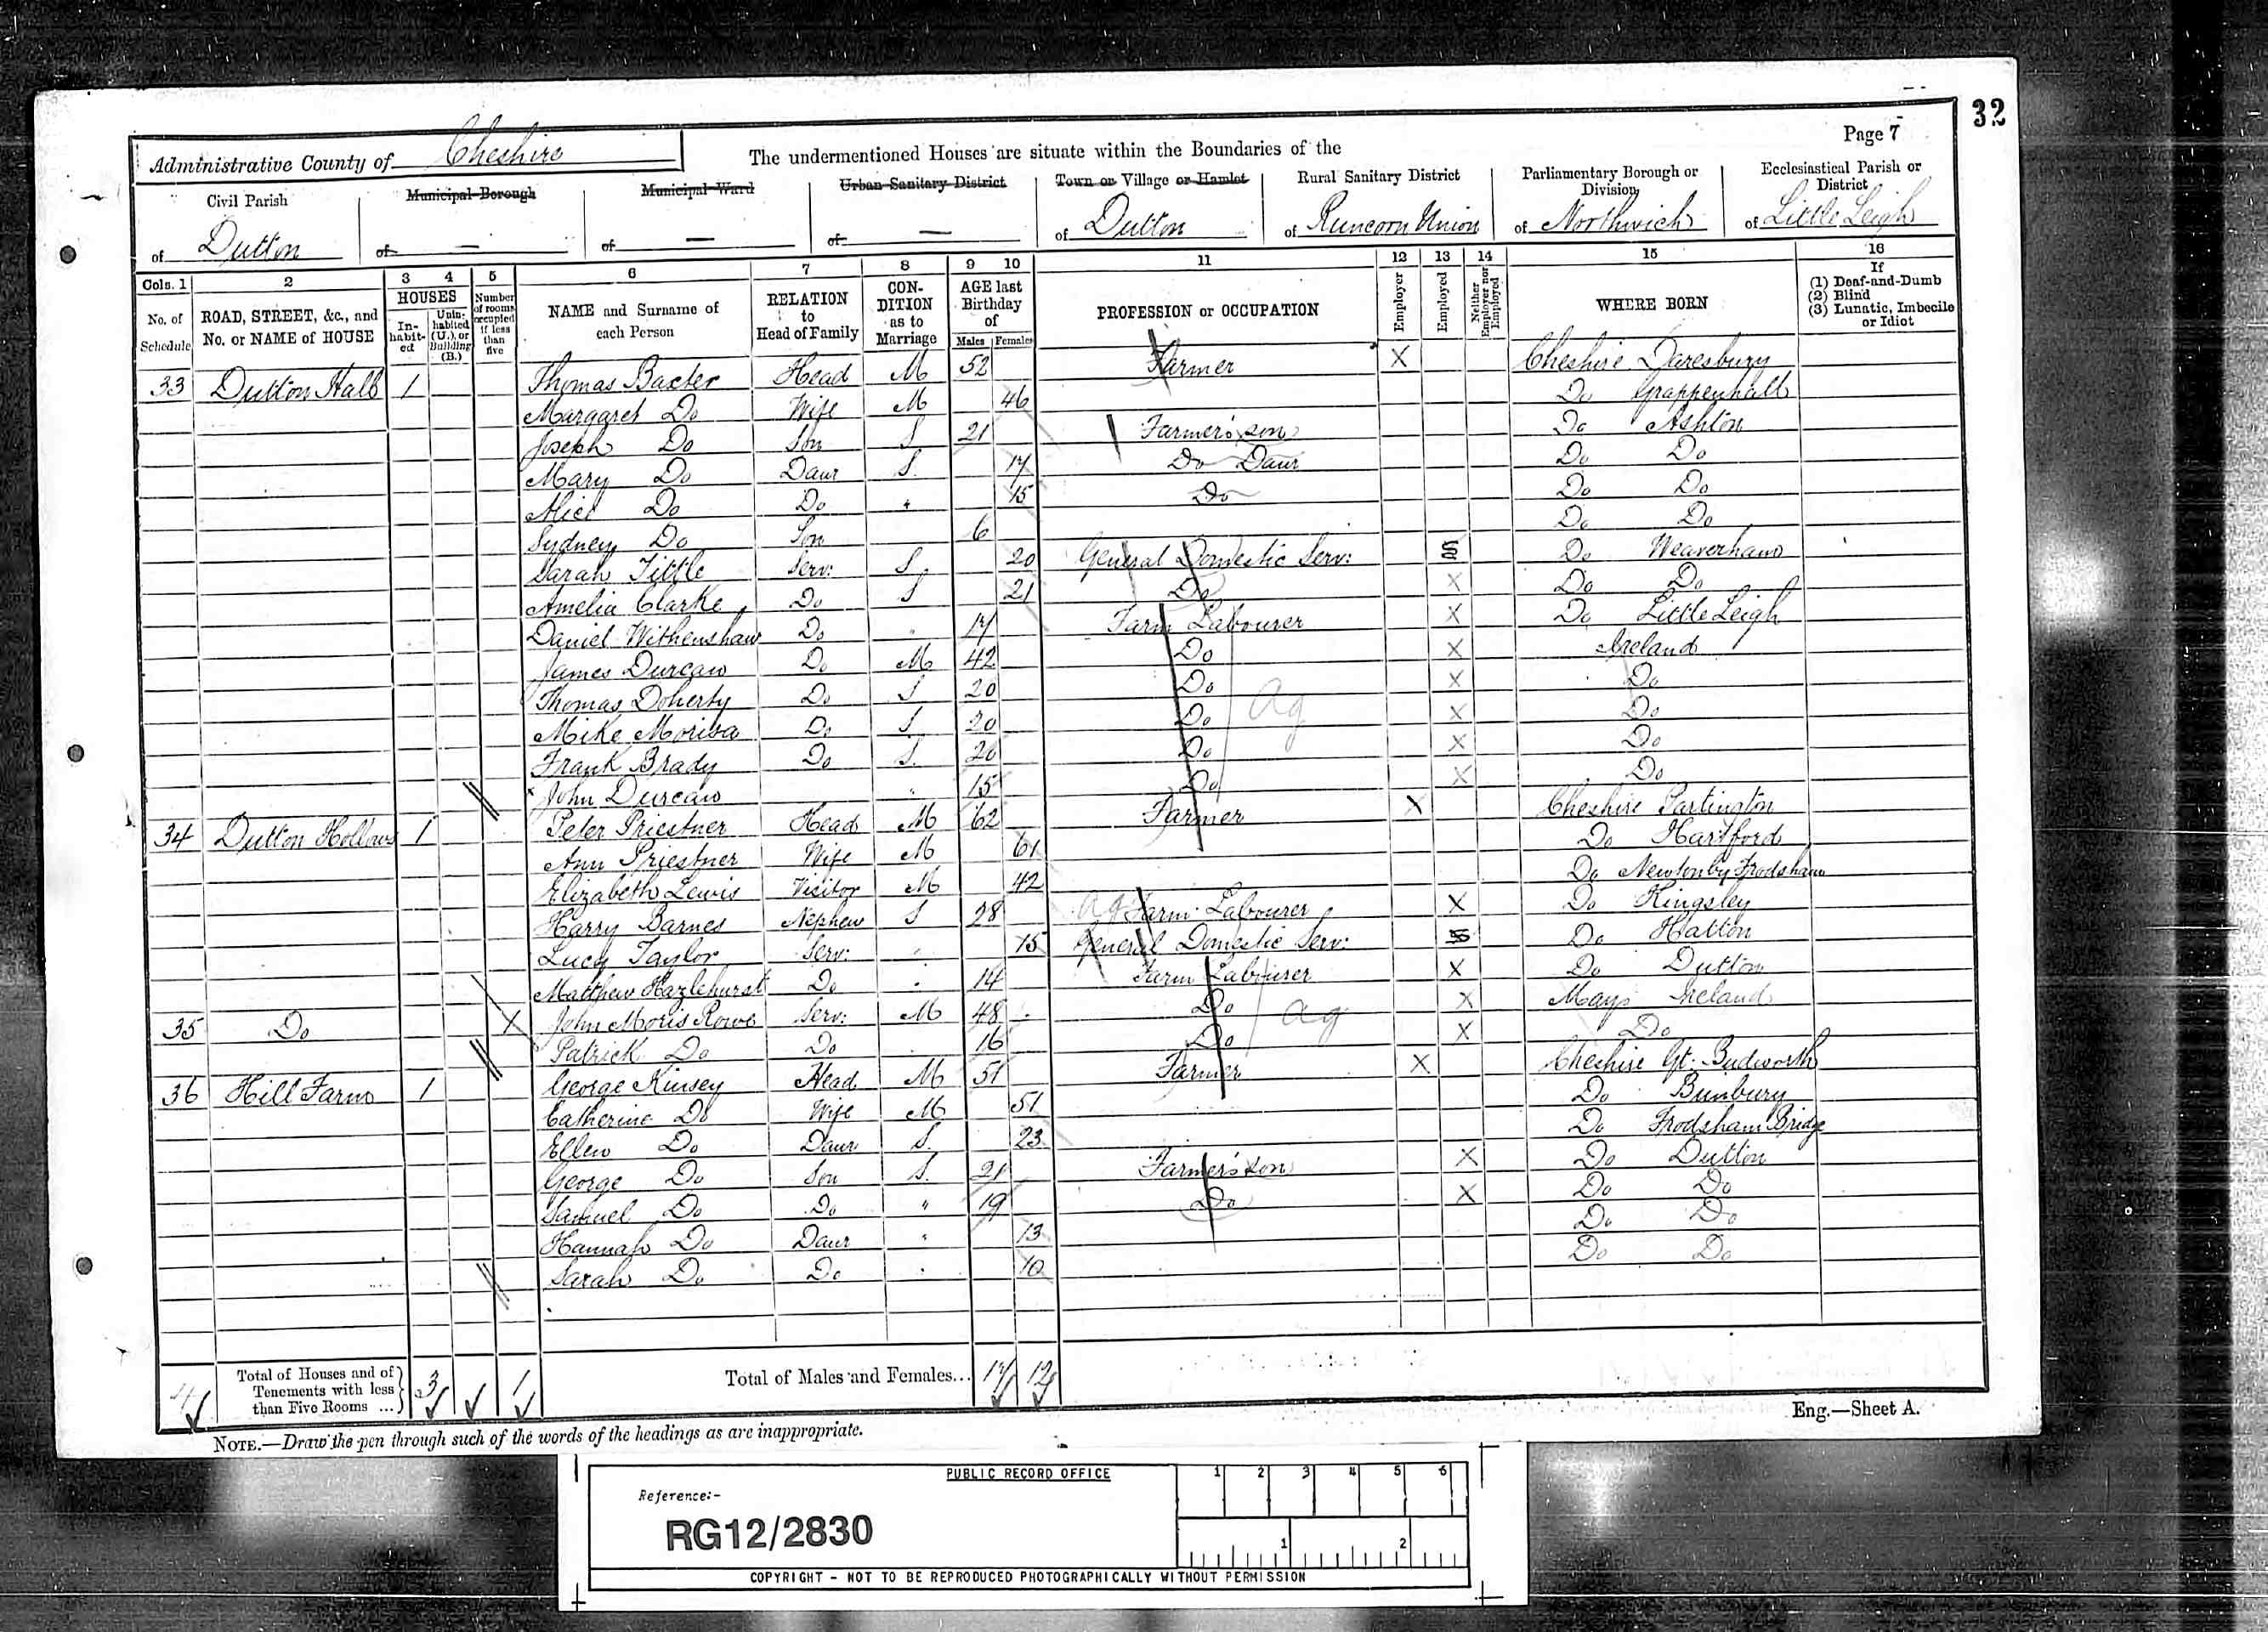 32
Page 7
Administrative County of Cheshire
The undermentioned Houses are situate within the Boundaries of the
Civil Parish
of Dutton
Municipal Borough
of —
Municipal Ward
of —
Urban Sanitary District
of —
Town or Village or Hamlet
of Dutton
Rural Sanitary District
of Runcorn Union
Parliamentary Borough or
Division
of Northwich
Ecclesiastical Parish or
District
of Little Leigh
Cols. 1 2 3 4 5 6 7 8 9 10 11 12 13 14 15 16
No. of Schedule
ROAD, STREET, &c., and No. or NAME of HOUSE
HOUSES
In-habit-ed
Unin-habited (U.), or Building (B.)
Number of rooms occupied if less than five
NAME and Surname of each Person
RELATION to Head of Family
CON-DITION as to Marriage
AGE last Birthday of
Males Females
PROFESSION or OCCUPATION
Employer
Employed
Neither Employer nor Employed
WHERE BORN
If
(1) Deaf-and-Dumb
(2) Blind
(3) Lunatic, Imbecile
or Idiot
33 Dutton Hall 1 Thomas Baxter Head M 52 Farmer X Cheshire Daresbury
Margaret Do Wife M 46 Do Grappenhall
Joseph Do Son S 21 Farmer's son Do Ashton
Mary Do Daur S. 17 Do Daur Do Do
Alice Do Do " 15 Do Do Do
Sydney Do Son 6 Do Do
Sarah Tittle Serv: S. 20 General Domestic Serv: Do Weaverham
Amelia Clarke Do S 21 Do X Do Do
Daniel Withenshaw Do " 17 Farm Labourer X Do Little Leigh
James Durcan Do M 42 Do X Ireland
Thomas Doherty Do S 20 Do X Do
Mike Do S 20 Do X Do
Frank Brady Do S. 20 Do X Do
John Durcan " 15 Do X Do
Ag
34 Dutton Hollows 1 Peter Priestner Head M 62 Farmer X Cheshire Partington
Ann Priestner Wife M 61 Do Hartford
Elizabeth Lewis Visitor M 42 Do Newton by Frodsham
Harry Barnes Nephew S 28 Ag Farm Labourer X Do Kingsley
Lucy Taylor Serv: " 15 General Domestic Serv: Do Hatton
Matthew Hazlehurst Do " 14 Farm Labourer X Do Dutton
35 Do X John Moris Rowe Serv: M 48 Do X Mayo Ireland
Patrick Do Do 16 Do X Do
Ag
36 Hill Farm 1 George Kinsey Head M 51 Farmer X Cheshire Gt. Budworth
Catherine Do Wife M 51 Do Bunbury
Ellen Do Daur S. 23 Do Frodsham Bridge
George Do Son S. 21 Farmer's son X Do Dutton
Samuel Do Do " 19 Do X Do Do
Hannah Do Daur " 13 Do Do
Sarah Do Do " 10 Do Do
4 Total of Houses and of
Tenements with less
than Five Rooms ... 3 1
Total of Males and Females... 17 12
Eng.—Sheet A.
NOTE.—Draw the pen through such of the words of the headings as are inappropriate.
PUBLIC RECORD OFFICE
Reference:-
RG12/2830
1 2 3 4 5 6
1 2
COPYRIGHT - NOT TO BE REPRODUCED PHOTOGRAPHICALLY WITHOUT PERMISSION